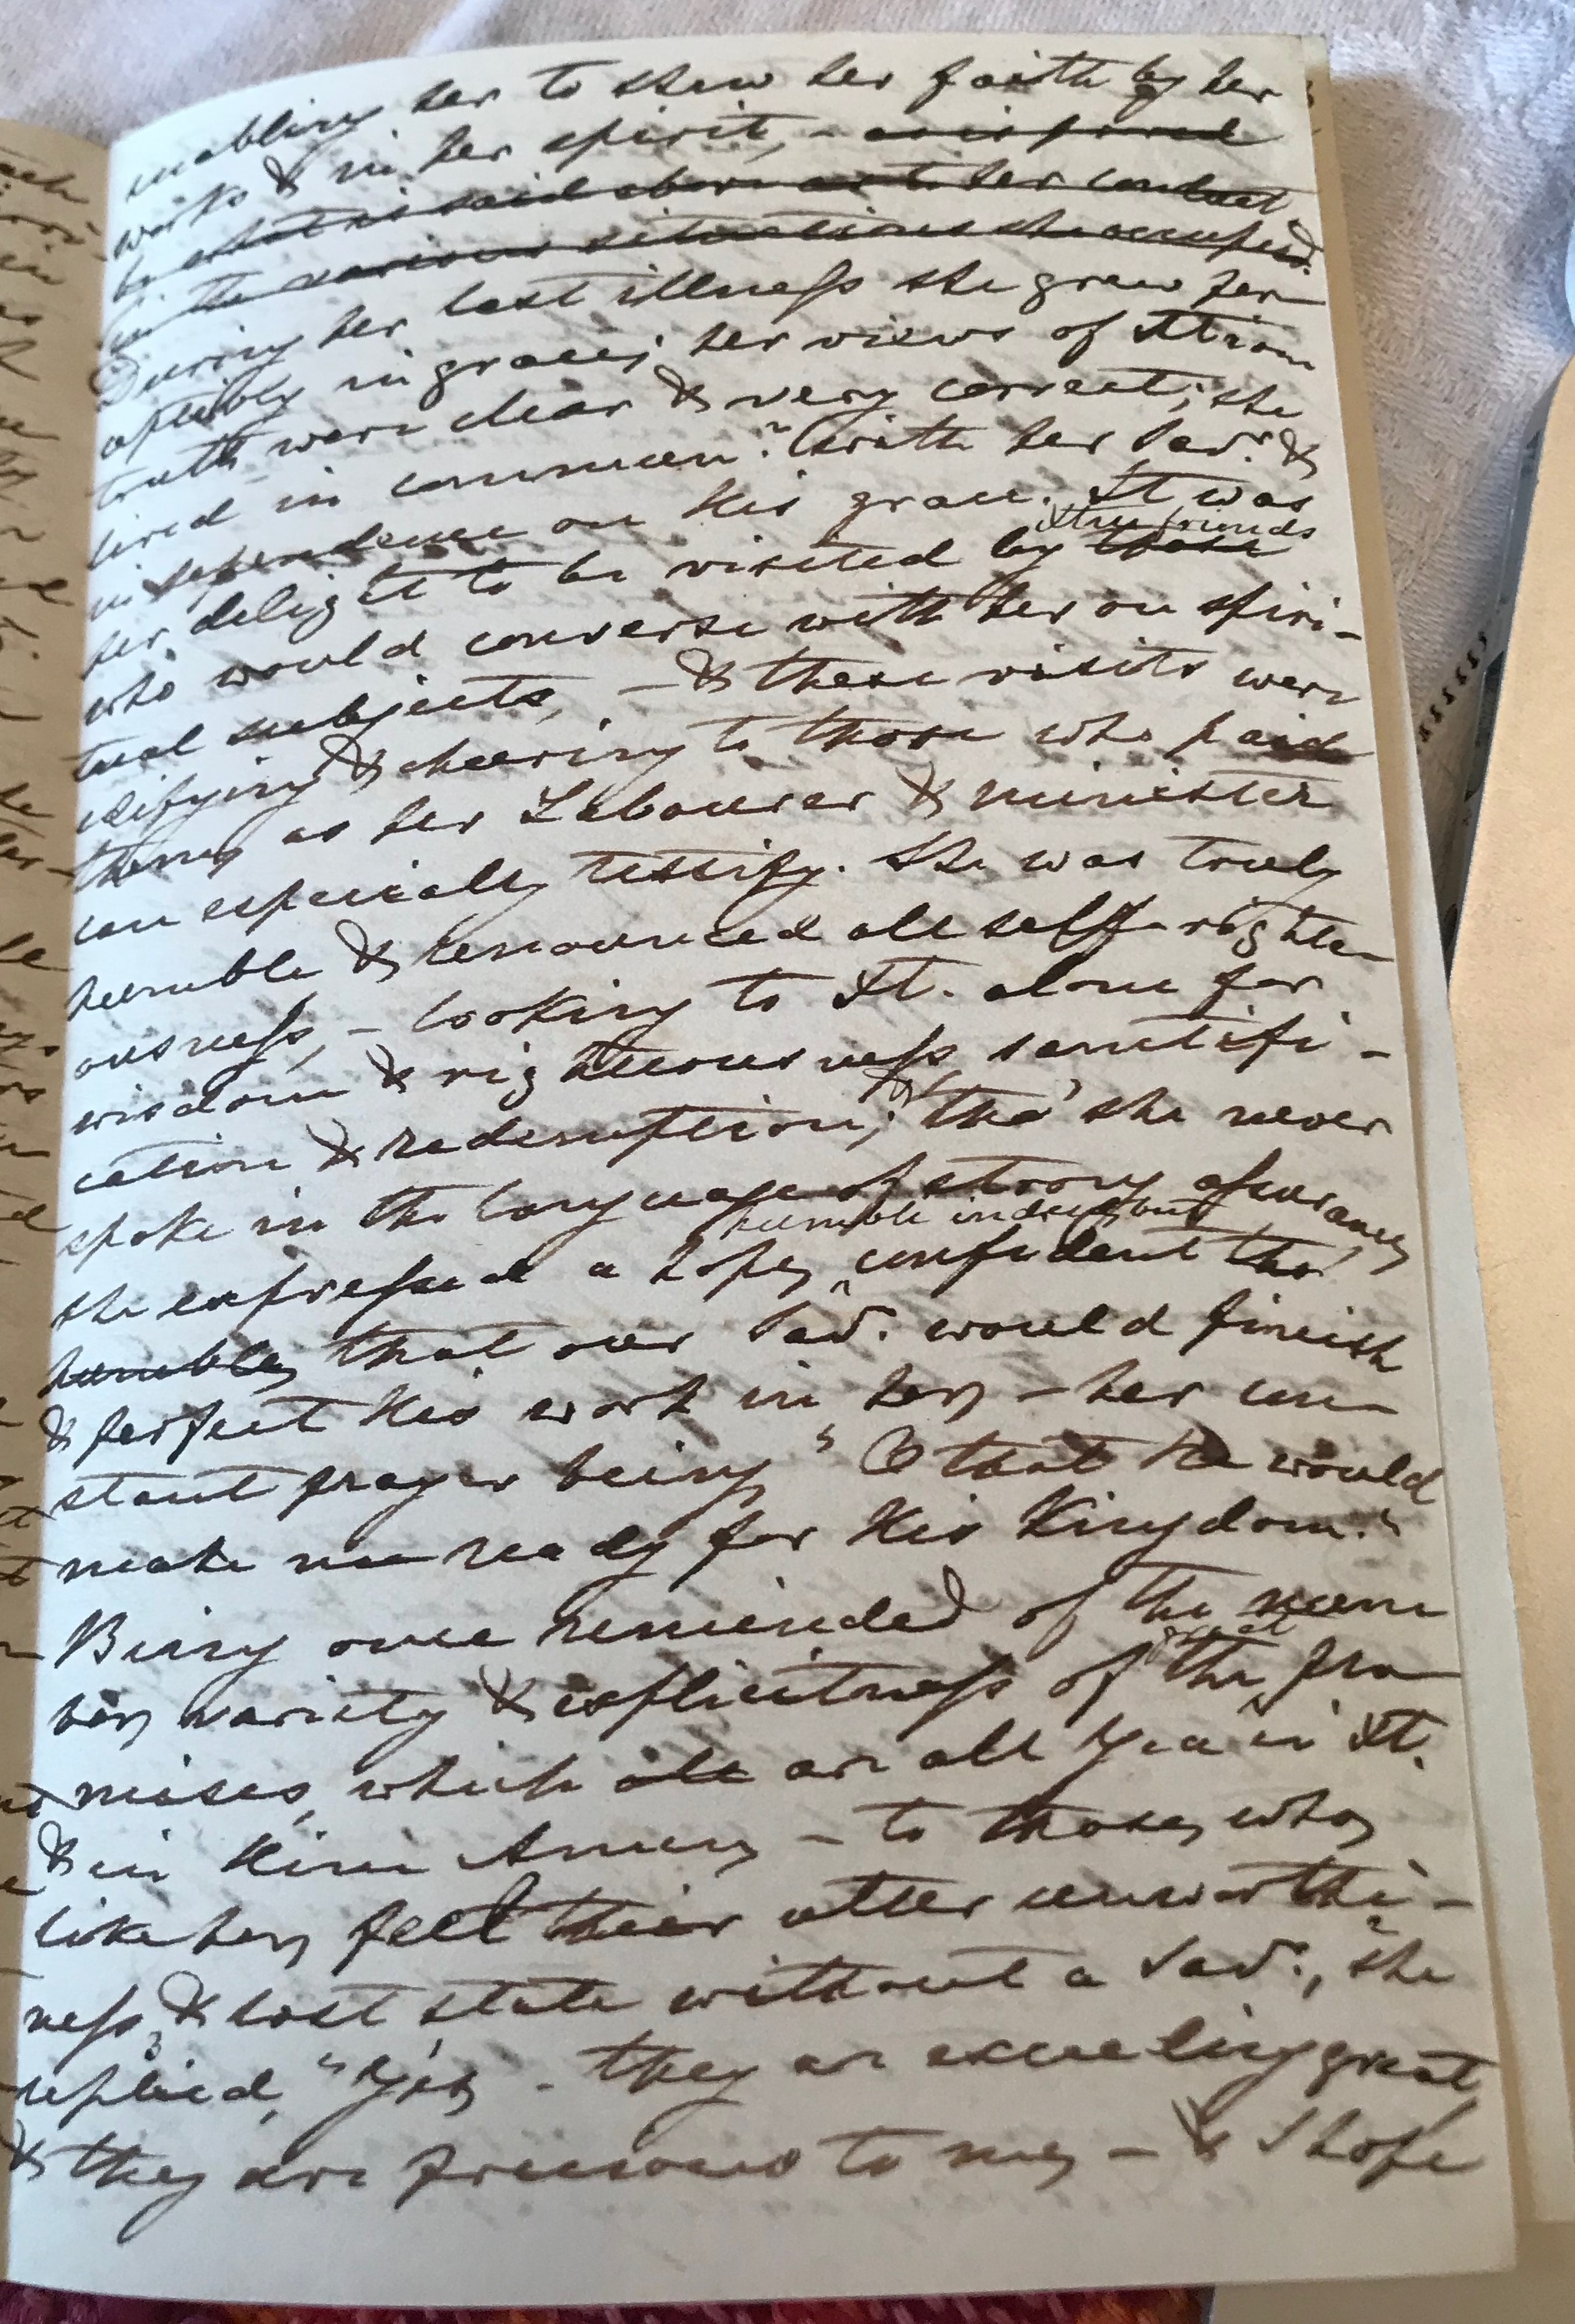 enabling her to shew her faith by her
works & in her spirit, - as is proved
by what is said above as to her conduct
in the various situations she occupied.
During her last illness she grew per-
ceptibly in grace; her views of Xtian
truth were clear & very correct; she
lived in commun: with her Savr. &
in dependence on His grace. It was
Xtian friends
her delight to be visited by those
who would converse with her on spiri-
tual subjects, - & these visits were
edifying & cheering to those who paid
them, as her Labourer & minister
can especially testify. She was truly
humble & renounced all self-righte-
ousness, - looking to Xt. alone for
wisdom & righteousness, sanctifi-
cation & redemption; & tho' she never
spoke in the language of strong assurance,
humble indeed, but
she expressed a hope, confident tho'
humble, that our Savr. would finish
& perfect His work in her, - her con-
stant prayer being, "O that He would
make me ready for His Kingdom."
Being once reminded of the num-
great
ber, variety & explicitness of the pro-
mises, which all are all Yea in Xt.
& in Him Amen, - to those, who,
like her, felt their utter unworthi-
ness, & lost state without a Savr., she
replied, "Yes, - they are exceeding great,
& they are precious to me, - & I hope